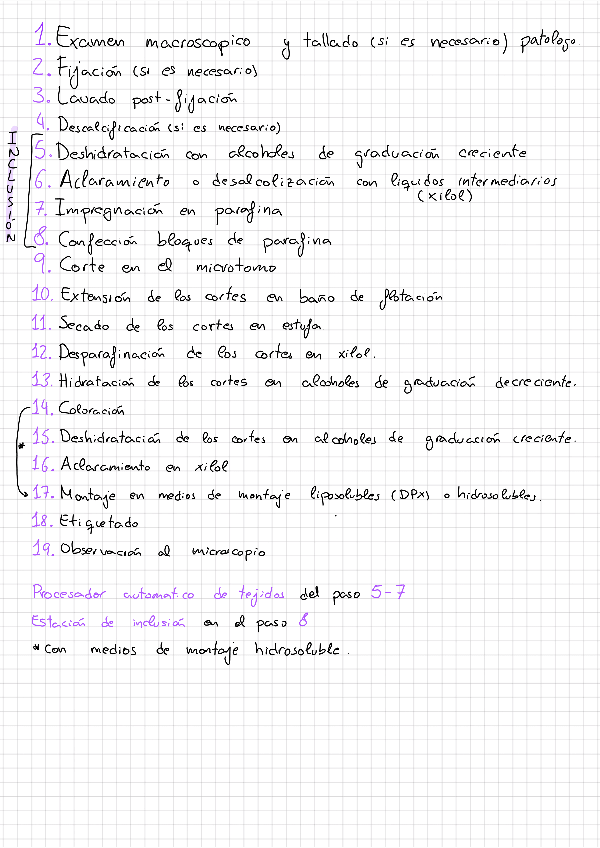 1. Examen macroscopico y tallado (si es necesario) patologo
2. Fijación (si es necesario)
3. Lavado post-fijación
4. Descalcificación (si es necesario)
INCLUSIÓN
5. Deshidratación con alcoholes de graduación creciente
6. Aclaramiento o desalcolización con liquidos intermediarios
(xilol)
7. Impregnación en parafina
8. Confección bloques de parafina
9. Corte en el microtomo
10. Extensión de los cortes en baño de flotación
11. Secado de los cortes en estufa
12. Desparafinación de los cortes en xilol.
13. Hidratación de los cortes en alcoholes de graduación decreciente.
14. Coloración
* 15. Deshidratación de los cortes en alcoholes de graduación creciente.
16. Aclaramiento en xilol
17. Montaje en medios de montaje liposolubles (DPX) o hidrosolubles.
18. Etiquetado
19. Observación al microscopio
Procesador automatico de tejidos del paso 5-7
Estación de inclusión en el paso 8
* Con medios de montaje hidrosoluble.